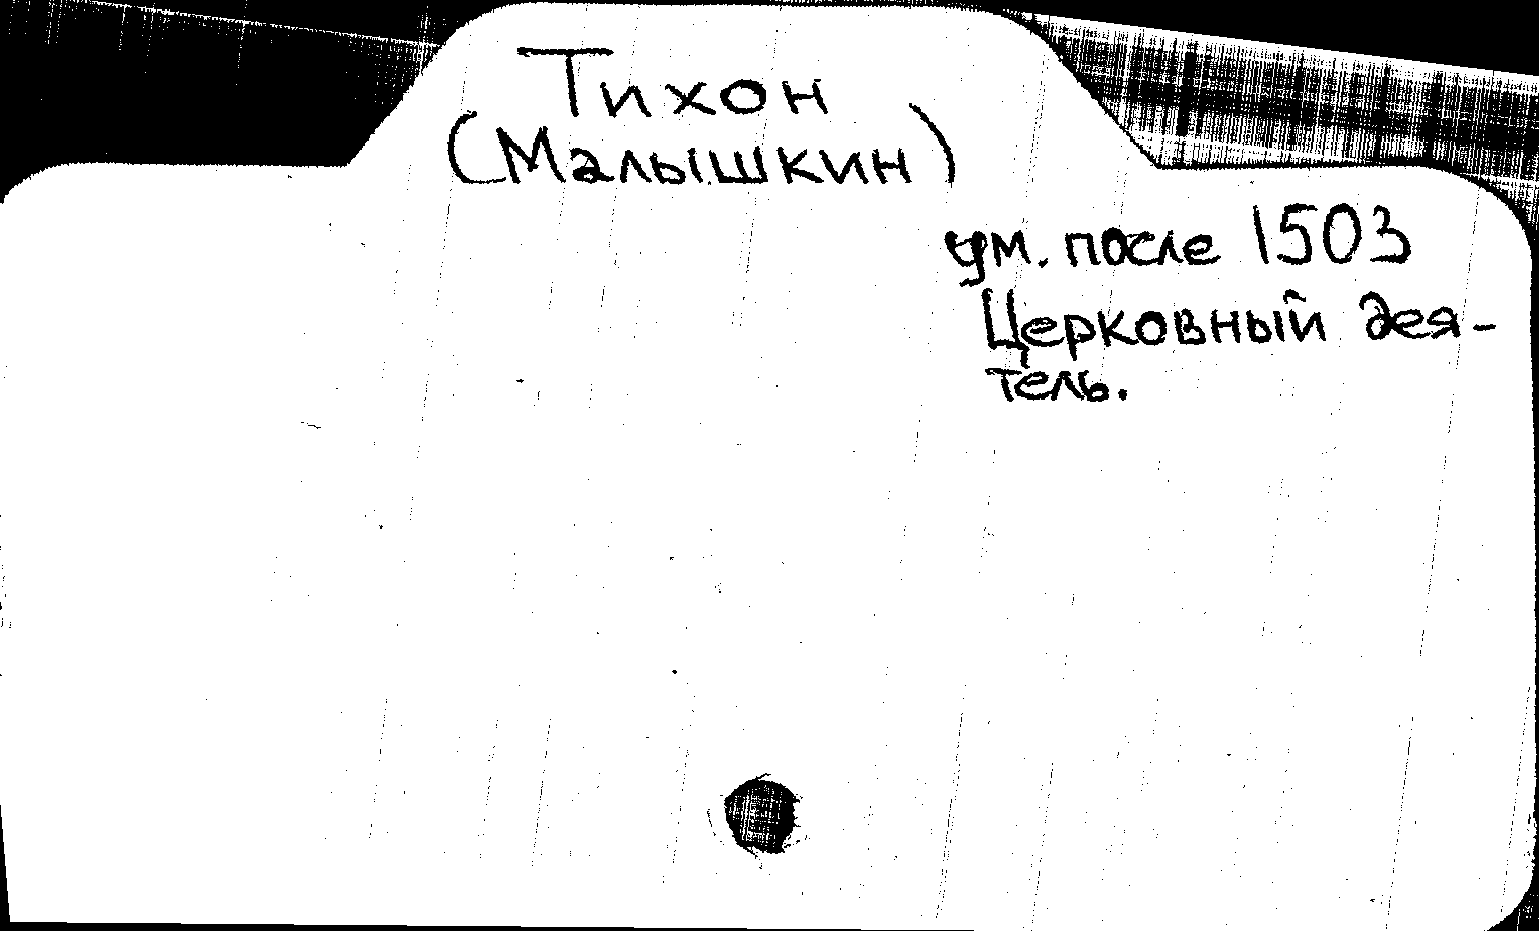 Тихон
(Малышкин)
ум. после 1503
Церковный дея-
тель.